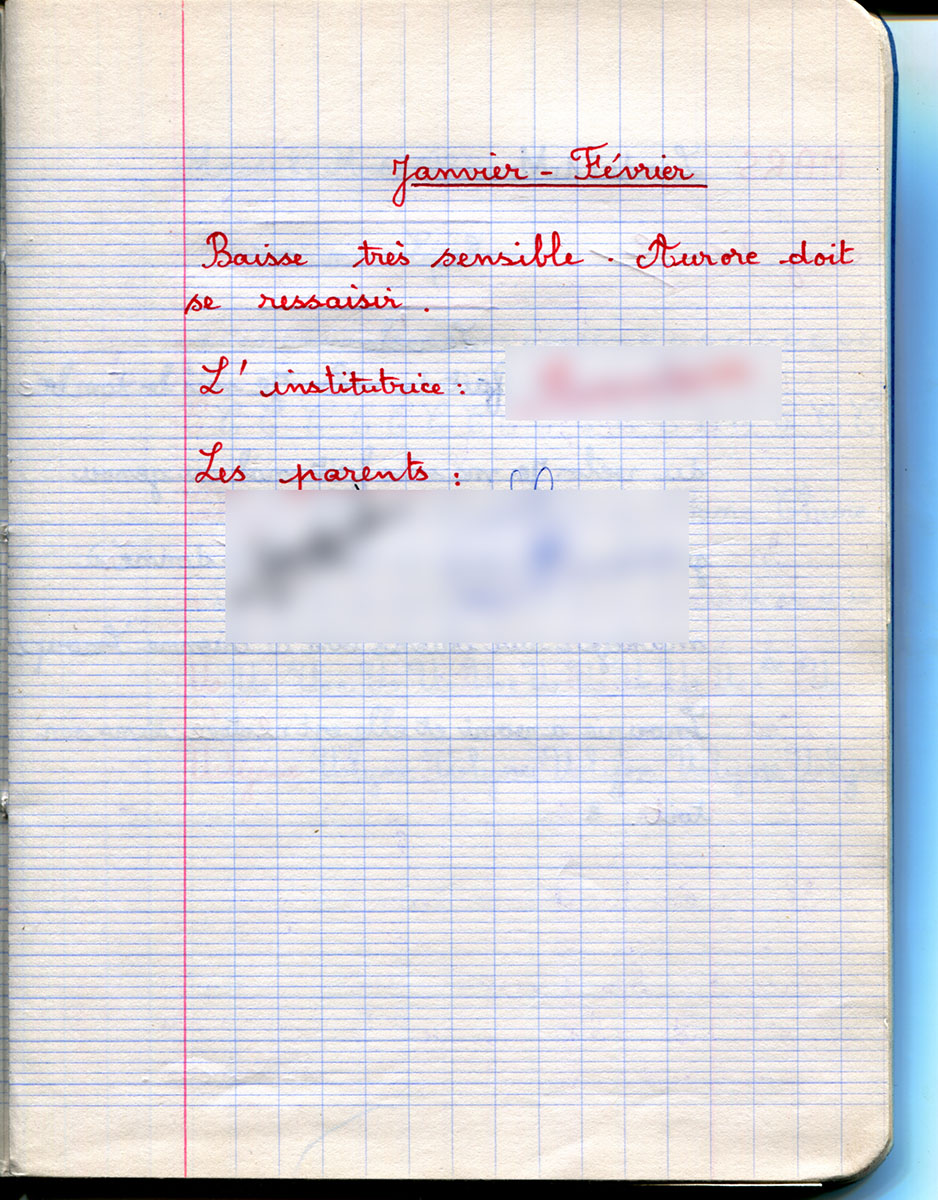 Janvier - Février
Baisse très sensible. Aurore doit
se ressaisir.
L'institutrice :
Les parents :